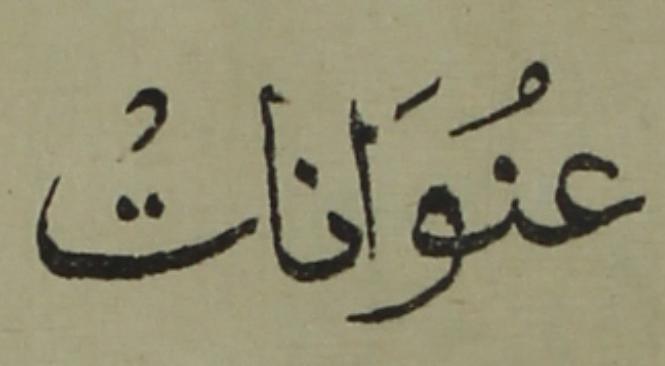 عنُوَاناتُ